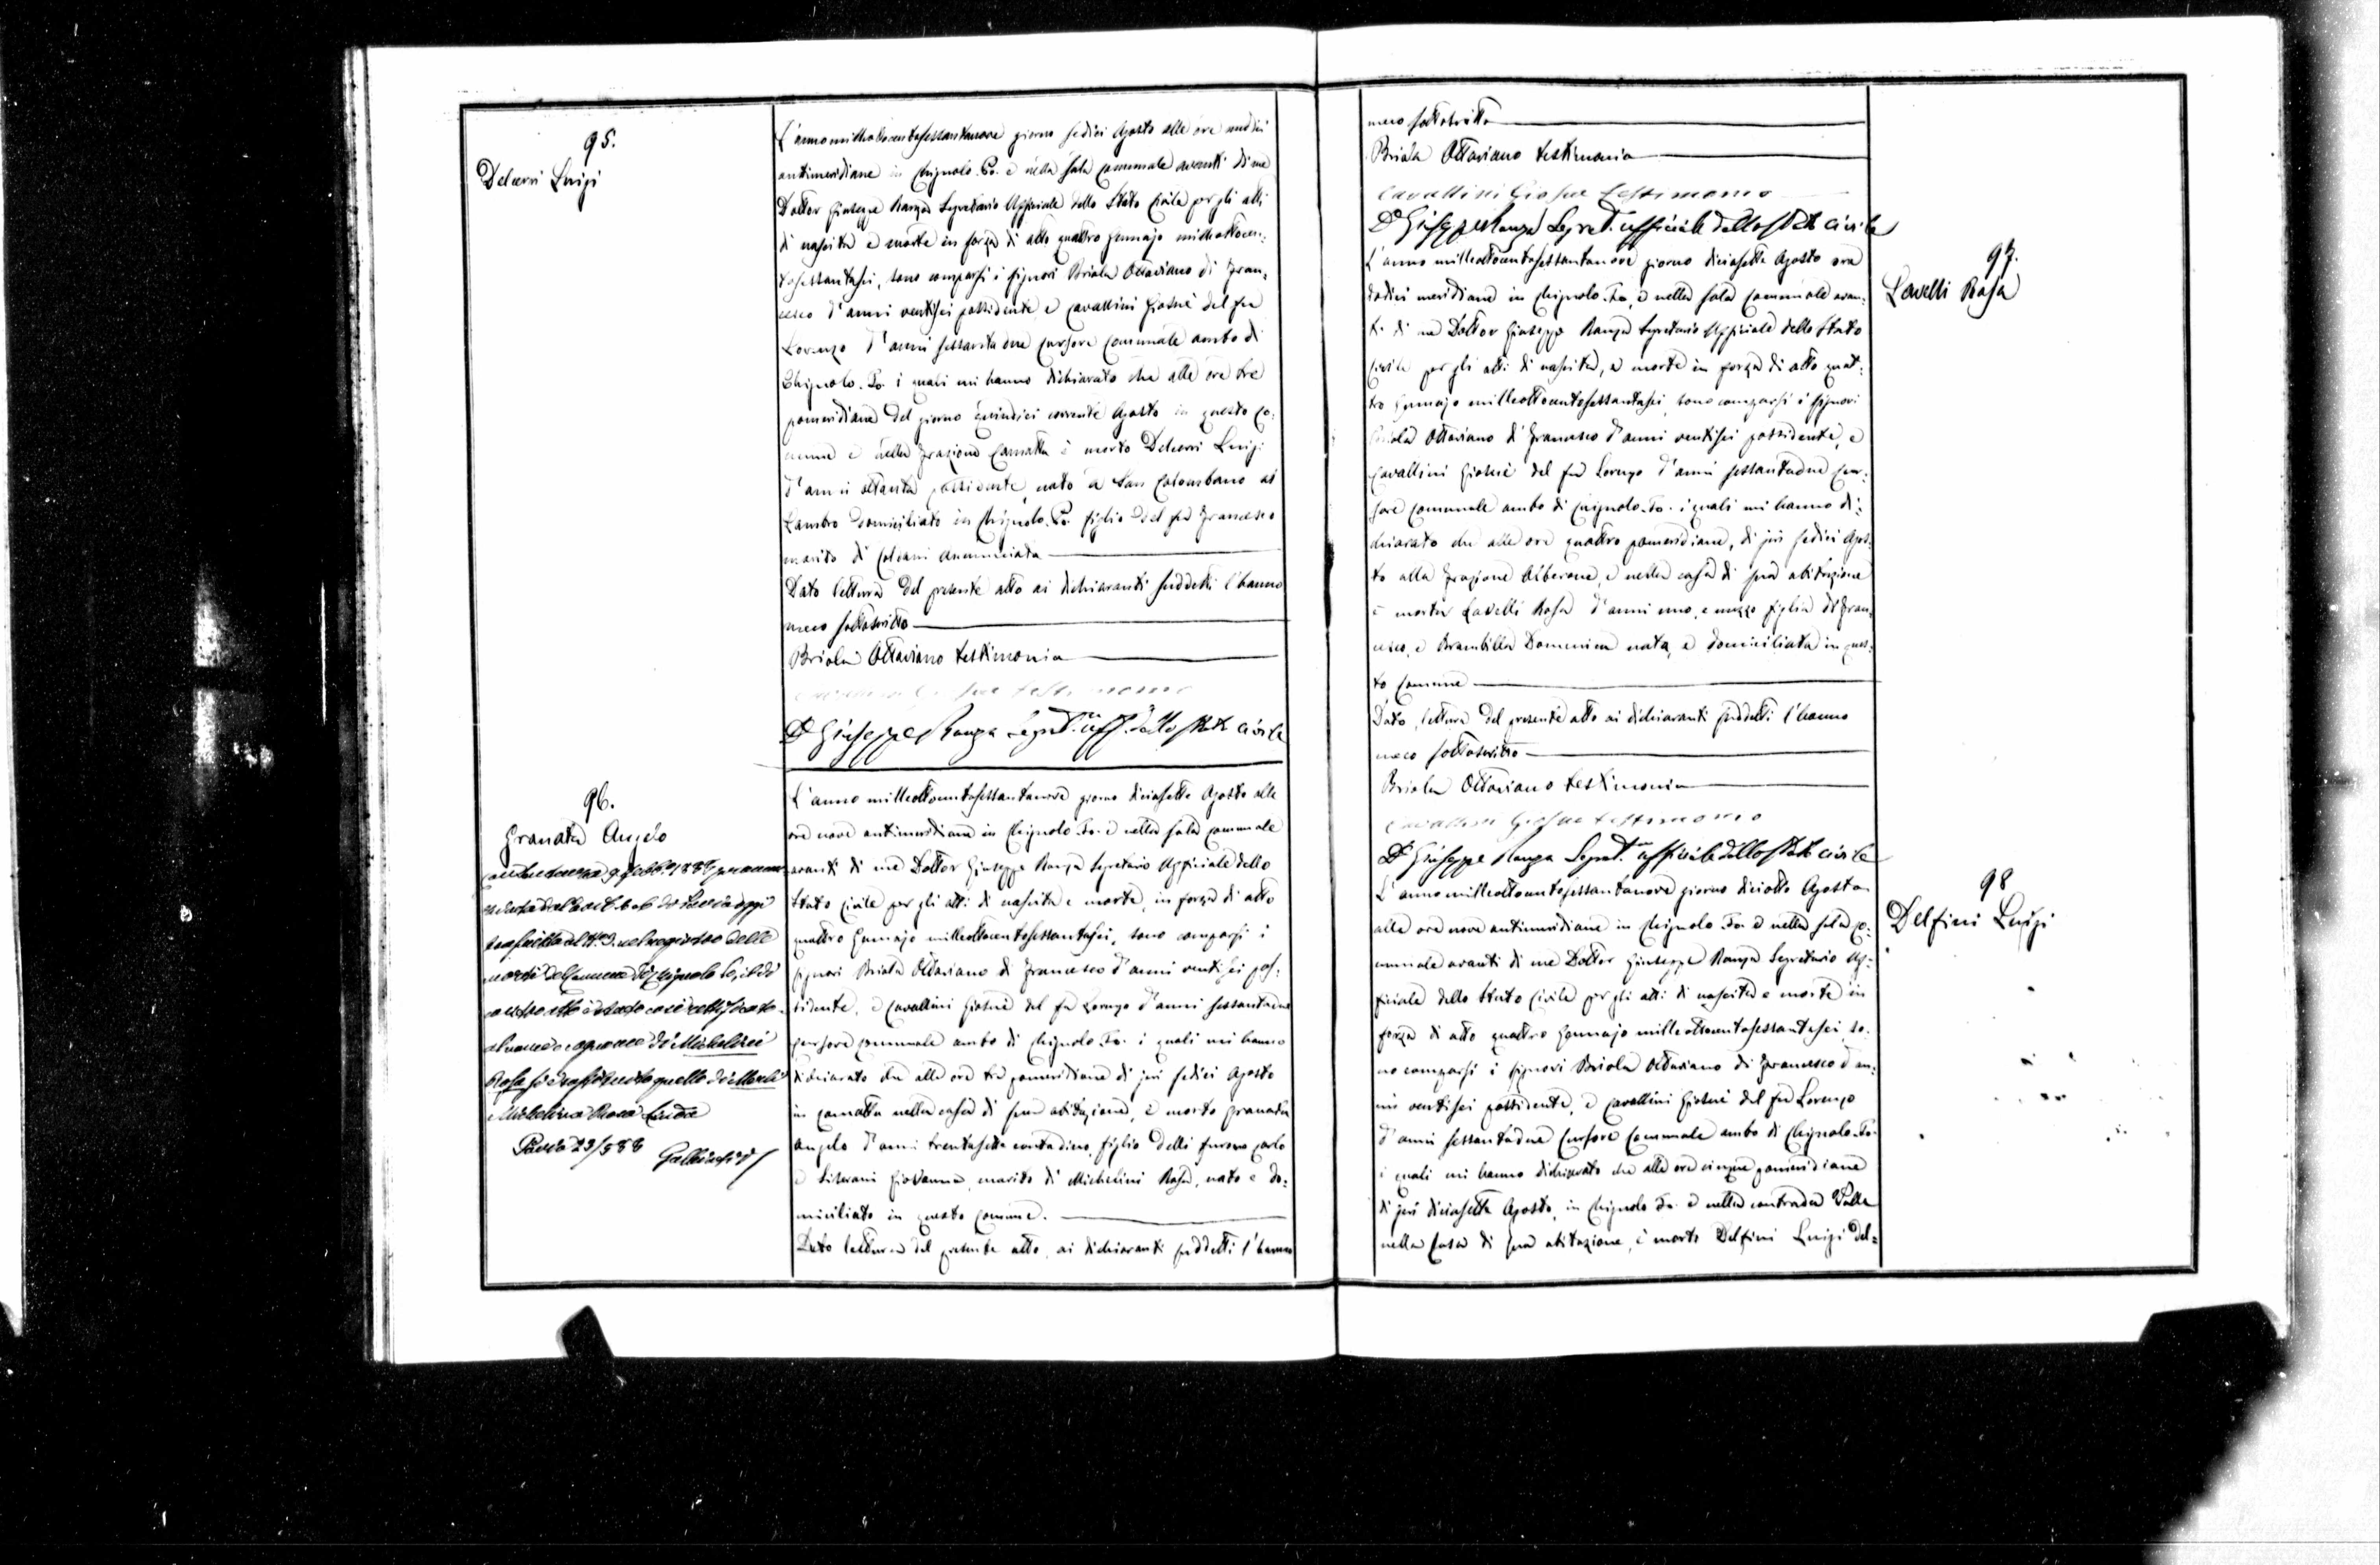 95.
Delcerri Luigi
L'anno milleottocentosessantanove giorno sedici Agosto alle ore undici
antimeridiane in Chignolo-Po. e nella sala Comunale avanti di me
Dottor Giuseppe Ranza Segretario Uffiziale dello Stato Civile per gli atti
di nascita e morte in forza di atto quattro Gennajo milleottocen:
tosessantasei, sono comparsi i signori Briola Ottaviano di Fran:
cesco d'anni ventisei possidente e Cavallini Giosuè del fu
Lorenzo d'anni sessantadue Cursore Comunale ambo di
Chignolo-Po. i quali mi hanno dichiarato che alle ore tre
pomeridiane del giorno quindici corrente Agosto in questo Co:
mune e nella frazione Camatta è morto Delcerri Luigi
d'anni ottanta possidente, nato a San Colombano al
Lambro domiciliato in Chignolo-Po. figlio del fu Francesco
marito di Annunciata
Dato lettura del presente atto ai dichiaranti suddetti l'hanno
meco sottoscritto
Briola Ottaviano testimonio
Cavallini Giosue testimonio
Dr Giuseppe Ranza Segret. uff. dello Stato civile
96.
Granata Angelo
Con Sentenza 9 febb. 1888
trascritta al N. 3. nel registro delle
morti del Comune di Chignolo Po, il di
contro atto è stato così rettificato.
al nome e cognome di Michelini
Rosa si è sostituito quello di Merli
Michelina Rosa
Pavia 23/3 88
L'anno milleottocentosessantanove giorno diciasette Agosto alle
ore nove antimeridiane in Chignolo-Po. e nella sala Comunale
avanti di me Dottor Giuseppe Ranza Segretario Uffiziale dello
Stato Civile per gli atti di nascita e morte, in forza di atto
quattro Gennajo milleottocentosessantasei, sono comparsi i
signori Briola Ottaviano di Francesco d'anni ventisei pos:
sidente, e Cavallini Giosuè del fu Lorenzo d'anni sessantadue
Cursore Comunale ambo di Chignolo-Po. i quali mi hanno
dichiarato che alle ore tre pomeridiane di jeri sedici Agosto
in Camatta nella casa di sua abitazione, è morto Granata
Angelo d'anni trentasette contadino, figlio delli furono Carlo
e Giovanna, marito di Michelini Rosa, nato e do:
miciliato in questo Comune.
Dato lettura del presente atto, ai dichiaranti suddetti l'hanno
meco sottoscritto
Briola Ottaviano testimonio
Cavallini Giosue testimonio
Dr Giuseppe Ranza Segret. ufficiale dello Stato civile
97.
Lavelli Rosa
L'anno milleottocentosessantanove giorno diciasette Agosto ora
dodici meridiane in Chignolo-Po, e nella sala Comunale avan:
ti di me Dottor Giuseppe Ranza Segretario Uffiziale dello Stato
Civile per gli atti di nascita, e morte in forza di atto quat:
tro Gennajo milleottocentosessantasei, sono comparsi i signori
Briola Ottaviano di Francesco d'anni ventisei possidente, e
Cavallini Giosuè del fu Lorenzo d'anni sessantadue Cur:
sore Comunale ambo di Chignolo-Po. i quali mi hanno di:
chiarato che alle ore quattro pomeridiane, di jeri sedici Agos:
to alla frazione Alberone, e nella casa di sua abitazione
è morta Lavelli Rosa d'anni uno, e mezzo figlia di Fran:
cesco, e Brambilla Domenica nata, e domiciliata in ques:
to Comune
Dato, lettura del presente atto ai dichiaranti suddetti l'hanno
meco sottoscritto
Briola Ottaviano testimonio
Cavallini Giosue testimonio
Dr Giuseppe Ranza Segret. ufficiale dello Stato civile
98
Delfini Luigi
L'anno milleottocentosessantanove giorno diciotto Agosto
alle ore nove antimeridiane in Chignolo-Po. e nella sala Co:
munale avanti di me Dottor Giuseppe Ranza Segretario Uf:
fiziale dello Stato Civile per gli atti di nascita e morte in
forza di atto quattro Gennajo milleottocentosessantasei, so:
no comparsi i signori Briola Ottaviano di Francesco d'an:
ni ventisei possidente, e Cavallini Giosuè del fu Lorenzo
d'anni sessantadue Cursore Comunale ambo di Chignolo-Po.
i quali mi hanno dichiarato che alle ore cinque pomeridiane
di jeri diciasette Agosto, in Chignolo Po. e nella contrada Valle
nella casa di sua abitazione, è morto Delfini Luigi del=